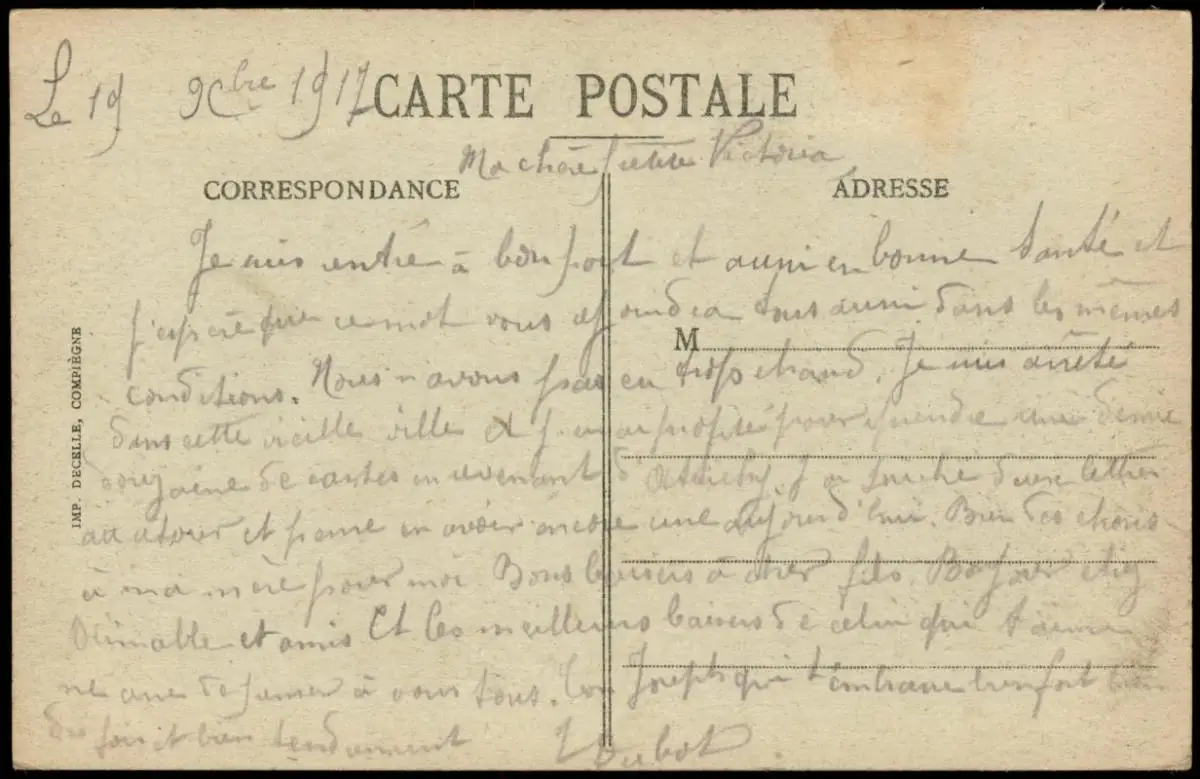 Le 19 9bre 1917
CARTE POSTALE
Ma chère petite Victoria
CORRESPONDANCE
ADRESSE
Je suis entré à bon port et aussi en bonne santé et
j'espère que ce mot vous joindra tous aussi dans les mêmes
M
conditions. Nous n'avons pas eu trop chaud. Je suis arrêté
dans cette vieille ville et j'en ai profité pour prendre une demie
douzaine de cartes en revenant d'Attichy. J'ai deux lettres
au retour et pense en avoir encore une aujourd'hui. Bien des choses
à ma mère pour moi. Bons baisers à cher fils. Bonjour
et amis Et les meilleurs baisers de celui qui t'aime
ne cesse de penser à vous tous. Ton Joseph qui t'embrasse bien fort bien
des fois et bien tendrement J Dubot.
IMP. DECELLE, COMPIÈGNE